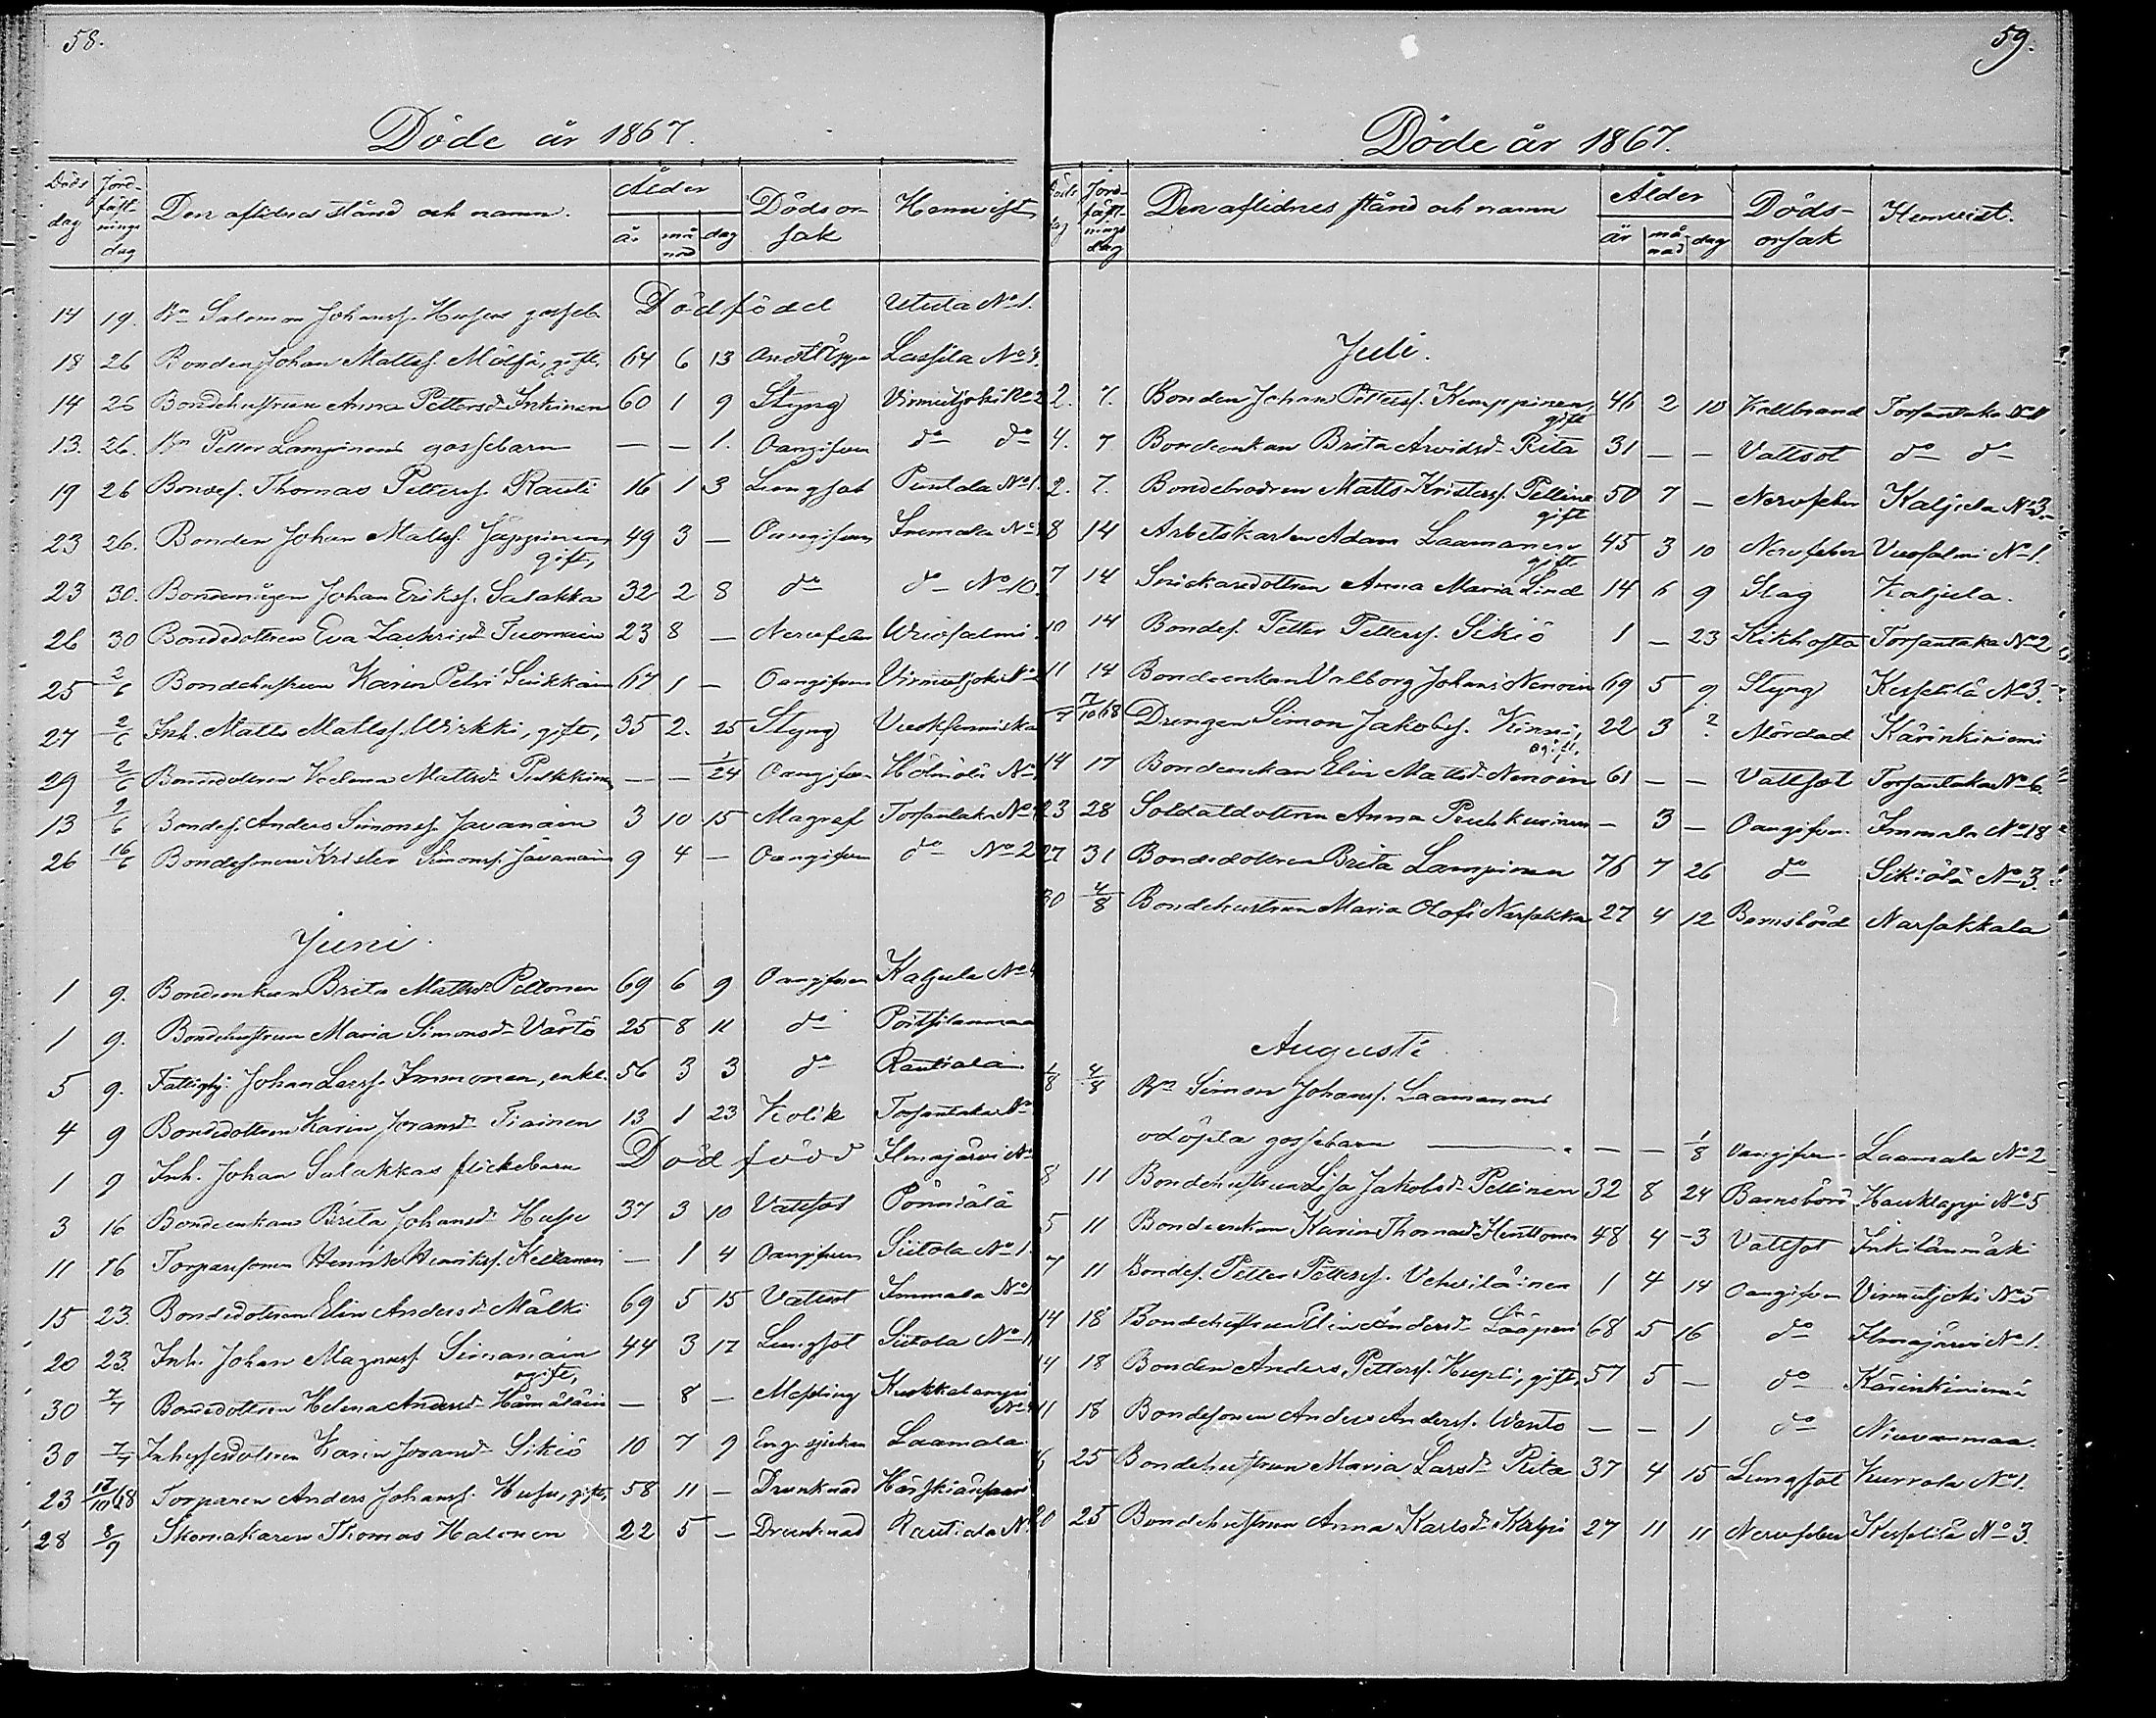 58.
Döde år 1867.
Döds dag Jordfästnings dag Den aflidnes stånd och namn. Ålder år månad dag Dödsorsak Hemvist
14 19. Bn Salomon Johanss. Husus gosseb. Dödfödd Utula No 1.
18 26 Bonden Johan Mattss. Mälsä, gift, 64 6 13 Andtäppa Lassila No 3.
14 26 Bondehustrun Anna Pettersd. Inkinen 60 1 9 Styng Virmutjoki No 2
13. 26. Bn Petter Lampinens gossebarn — — 1. Oangifven do do
19 26 Bondes. Thomas Petterss. Rauti 16 1 3 Lungsot Puntala No 1.
23 26. Bonden Johan Mattss. Jäppinen gift, 49 3 — Oangifven Immala No
23 30. Bondemågen Johan Eriks. Salakka 32 2 8 do do No 10.
26 30 Bondedottren Eva Zachrisd. Tuomain 23 8 — Nervfeber Wuosalmi
25 2/6 Bondehustrun Karin Petri Suikkain 67 1 — Oangifven Virmutjoki No 2
27 2/6 Inh. Matts Mattss. Wirkki, gift, 35 2. 25 Styng Vuoksenniska
29 2/6 Bondedottren Helena Mattsd. Pulkkinen — — 1/24 Oangifven Hölmölä No
13 2/6 Bondes. Anders Simonss. Javanain 3 10 15 Magref Torsantaka No
26 16/6 Bondesonen Krister Simonss. Javanain 9 4 — Oangifven do No 2
Juni.
1 9. Bondeenkan Brita Mattsd. Peltonen 69 6 9 Oangifven Kaljula No 4
1 9. Bondehustrun Maria Simonsd. Värtö 25 8 11 do Pörtsilanmaa
5 9. Fattighj. Johan Larss. Immonen, enkl. 56 3 3 do Rautiala
4 9 Bondedottren Karin Joransd. Tiainen 13 1 23 Kolik Torsantaka No
1 9 Inh. Johan Salakkas flickebarn Dödfödd Ilmajärvi No
3 16 Bondeenkan Brita Johansd. Husu 37 3 10 Vattsot Pönniälä
11 16 Torparesonen Henrik Henrikss. Kellanen — 1 4 Oangifven Siitola No 1.
15 23. Bondedottren Elin Andersd. Mälki 69 5 15 Vattsot Immala No
20 23 Inh. Johan Magnuss. Simanain ogift, 44 3 17 Lungsot Siitola No 11
30 7/7 Bondedottren Helena Andersd. Hämäläin — 8 — Messling Kuokkalampi No 4
30 7/7 Inhysesdottren Karin Joransd. Sikiö 10 7 9 Eng. sjukan Laamala
23 17/10 68 Torparen Anders Johanss. Husu, gift, 58 11 — Drunknad Härskiänsaari
28 8/9 Skomakaren Thomas Halonen 22 5 — Drunknad Rautiala No
59.
Döde år 1867.
Döds dag Jordfästnings dag Den aflidnes stånd och namn Ålder år månad dag Dödsorsak Hemvist.
Juli.
2. 7. Bonden Johan Petterss. Kemppinen, gift 46 2 10 Kallbrand Torsantaka No 11
4. 7 Bondeenkan Brita Arvidsd. Rita 31 — — Vattsot do do
2. 7. Bondebrodren Matts Kristerss. Pelline gift 50 7 — Nervfeber Kaljula No 3.
8 14 Arbetskarlen Adam Laamanen gift 45 3 10 Nervfeber Vuosalmi No 1.
7 14 Snickaredottren Anna Maria Lind 14 6 9 Slag Kaljula.
10 14 Bondes. Petter Petterss. Sikiö 1 — 23 Kikhosta Torsantaka No 2
11 14 Bondeenkan Valborg Johans Nenoin 69 5 9. Styng Kesselilä No 3.
7 7/10 68 Drengen Simon Jakobss. Kinni, ogift, 22 3 ? Mördad Kärinkiniemi
14 17 Bondeenkan Elin Mattsd. Nenoin 61 — — Vattsot Torsantaka No 6.
23 28 Soldatdottren Anna Puhkurinen — 3 — Oangifven. Immala No 18
27 31 Bondedottren Brita Lampinen 76 7 26 do Sikiölä No 3.
30 4/8 Bondehustrun Maria Olofs Narsakka 27 4 12 Barnsbörd Narsakkala
Augusti
1/8 4/8 Bn Simon Johanss. Laamanens
odöpta gossebarn — — 1/8 Oangifven Laamala No 2
8 11 Bondehustrun Lisa Jakobsd. Pellinen 32 8 24 Barnsbörd Hauklappi No 5
5 11 Bondeenkan Karin Thomasd. Henttonen 48 4 3 Vattsot Inkilänmäki
7 11 Bondes. Petter Petterss. Vehviläinen 1 4 14 Oangifven Virmutjoki No 5
14 18 Bondehustrun Elin Andersd. Lääperi 68 5 16 do Ilmajärvi No 1.
14 18 Bonden Anders Petterss. Hupli, gift, 57 5 — do Kärinkiniemi
11 18 Bondesonen Anders Anderss. Wanto — — 1 do Niuvanmaa.
6 25 Bondehustrun Maria Larsd. Rita 37 4 15 Lungsot Kurvola No 1.
20 25 Bondehustrun Anna Karlsd. Karpi 27 11 11 Nervfeber Kesselilä No 3.